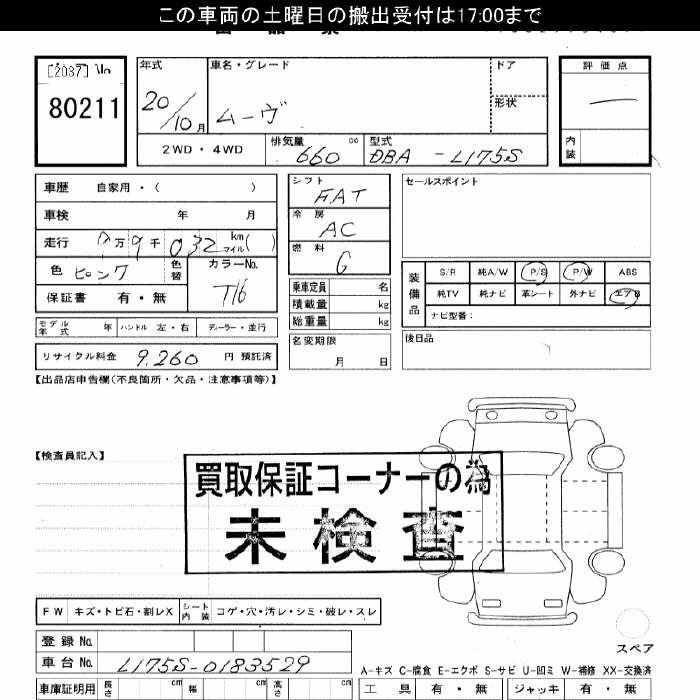 この車両の土曜日の搬出受付は17:00まで
[2037] No.
80211
年式
20/10月
車名・グレード
ムーヴ
ドア
形状
評価点
内装
2WD・4WD
排気量
660 cc
型式
DBA - L175S
車歴 自家用・( )
車検 年 月
走行 万 9千 032 km マイル ( )
色 ピンク 色替
カラーNo.
T16
保証書 有・無
シフト
FAT
冷房
AC
燃料
G
乗車定員 名
積載量 kg
総重量 kg
名変期限
月 日
セールスポイント
装備品
S/R 純A/W P/S P/W ABS
純TV 純ナビ 革シート 外ナビ エアB
ナビ型番:
後日品
モデル年式 年 ハンドル 左・右 ディーラー・並行
リサイクル料金 9,260 円 預託済
【出品店申告欄(不良箇所・欠品・注意事項等)】
【検査員記入】
買取保証コーナーの為
未検査
FW キズ・トビ石・割レX シート内装 コゲ・穴・汚レ・シミ・破レ・スレ
登録 No.
車台 No. L175S-0183529
スペア
A-キズ C-腐食 E-エクボ S-サビ U-凹ミ W-補修 XX-交換済
車庫証明用 長さ cm 幅 cm 高さ cm
工具 有・無 ジャッキ 有・無